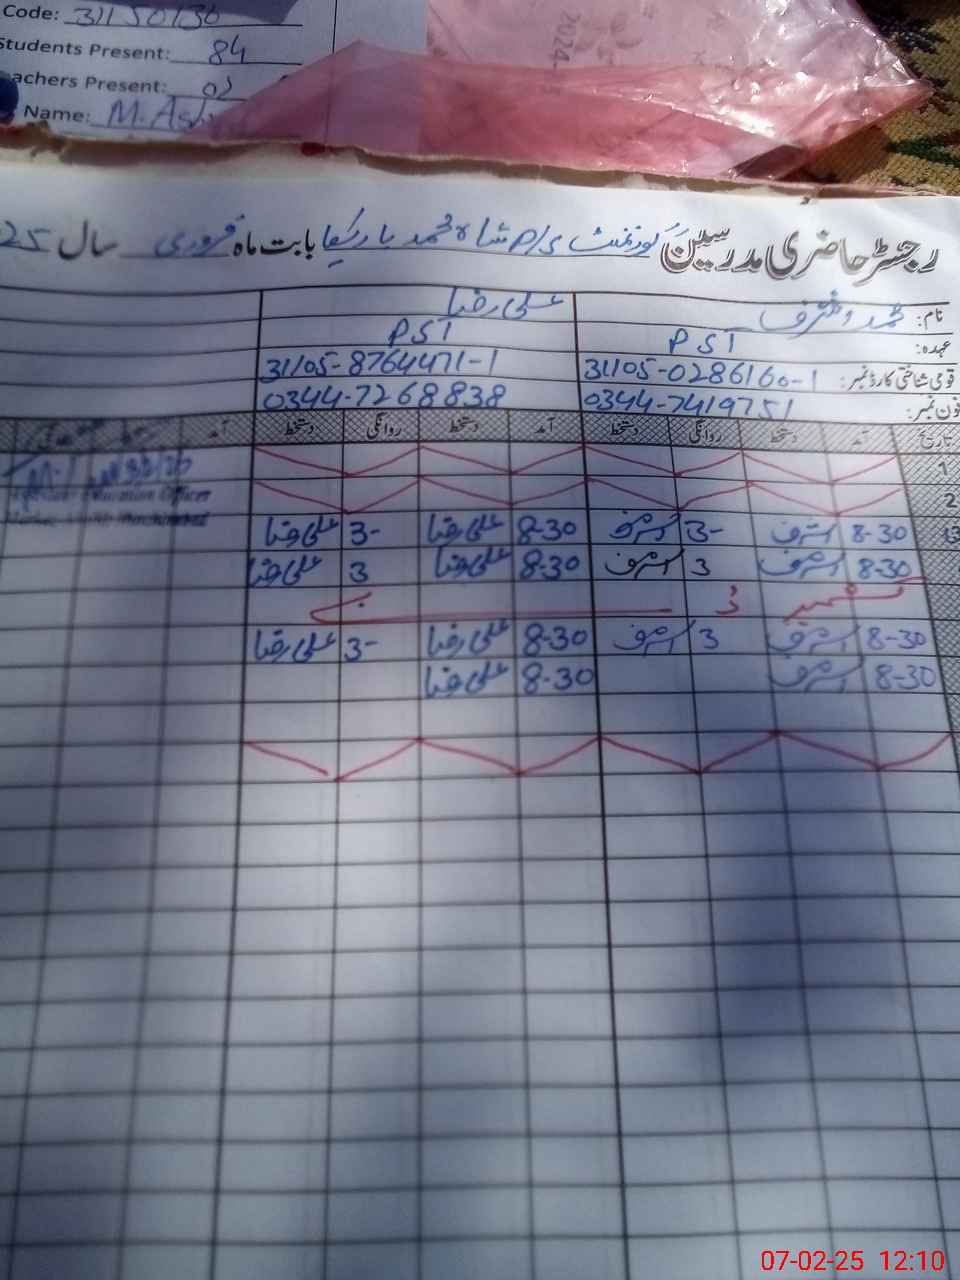 Code: 31150136
Students Present: 84
eachers Present: 02
Name: M. Ash
2024-
رجسٹر حاضری مدرسین گورنمنٹ P/S شاہ محمد بابت ماہ فروری سال 25
نام: محمد اشرف علی رضا
عہدہ: PST PST
قومی شناختی کارڈ نمبر: 31105-0286160-1 31105-8764471-1
فون نمبر: 0344-7419751 0344-7268838
تاریخ آمد دستخط روانگی دستخط آمد دستخط روانگی دستخط آمد
1
2
3 8-30 اشرف 3- اشرف 8-30 علی رضا 3- علی رضا
8-30 اشرف 3 اشرف 8-30 علی رضا 3 علی رضا
کشمیر ڈے
8-30 اشرف 3 اشرف 8-30 علی رضا 3- علی رضا
8-30 اشرف 8-30 علی رضا
Education Officer
07-02-25 12:10